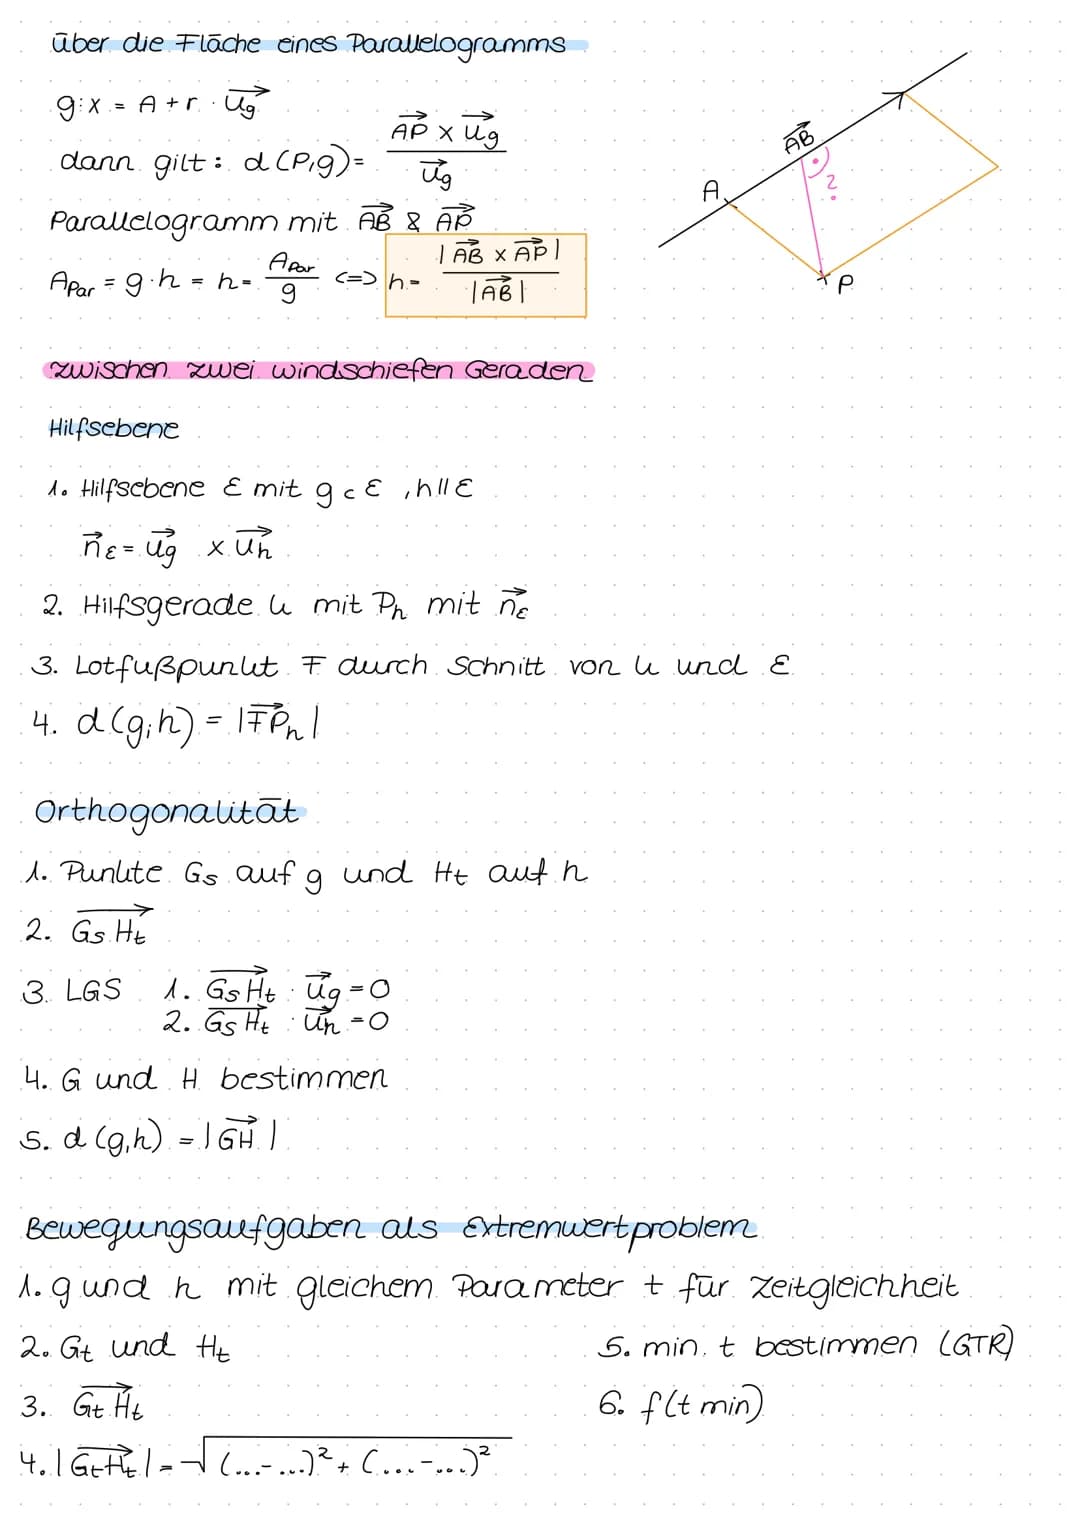 über die Fläche eines Parallelogramms
g: x = A + r · u⃗g
dann gilt: d(P,g) = (AP⃗ x u⃗g) / u⃗g
Parallelogramm mit AB⃗ & AP⃗
APar = g·h = h = APar / g <=> h = |AB⃗ x AP⃗| / |AB⃗|
A
AB⃗
?
P
zwischen zwei windschiefen Geraden
Hilfsebene
1. Hilfsebene ε mit g ⊂ ε , h || ε
n⃗ε = u⃗g x u⃗h
2. Hilfsgerade k mit Ph mit n⃗ε
3. Lotfußpunkt F durch Schnitt von k und ε
4. d(g;h) = |FPh⃗|
Orthogonalität
1. Punkte Gs auf g und Ht auf h
2. GsHt⃗
3. LGS 1. GsHt⃗ · u⃗g = 0
2. GsHt⃗ · u⃗h = 0
4. G und H bestimmen
5. d(g,h) = |GH⃗|
Bewegungsaufgaben als Extremwertproblem
1. g und h mit gleichem Parameter t für Zeitgleichheit
2. Gt und Ht
3. GtHt⃗
4. |GtHt⃗| = √(...-...)² + (...-...)²
5. min. t bestimmen (GTR)
6. f(t min)